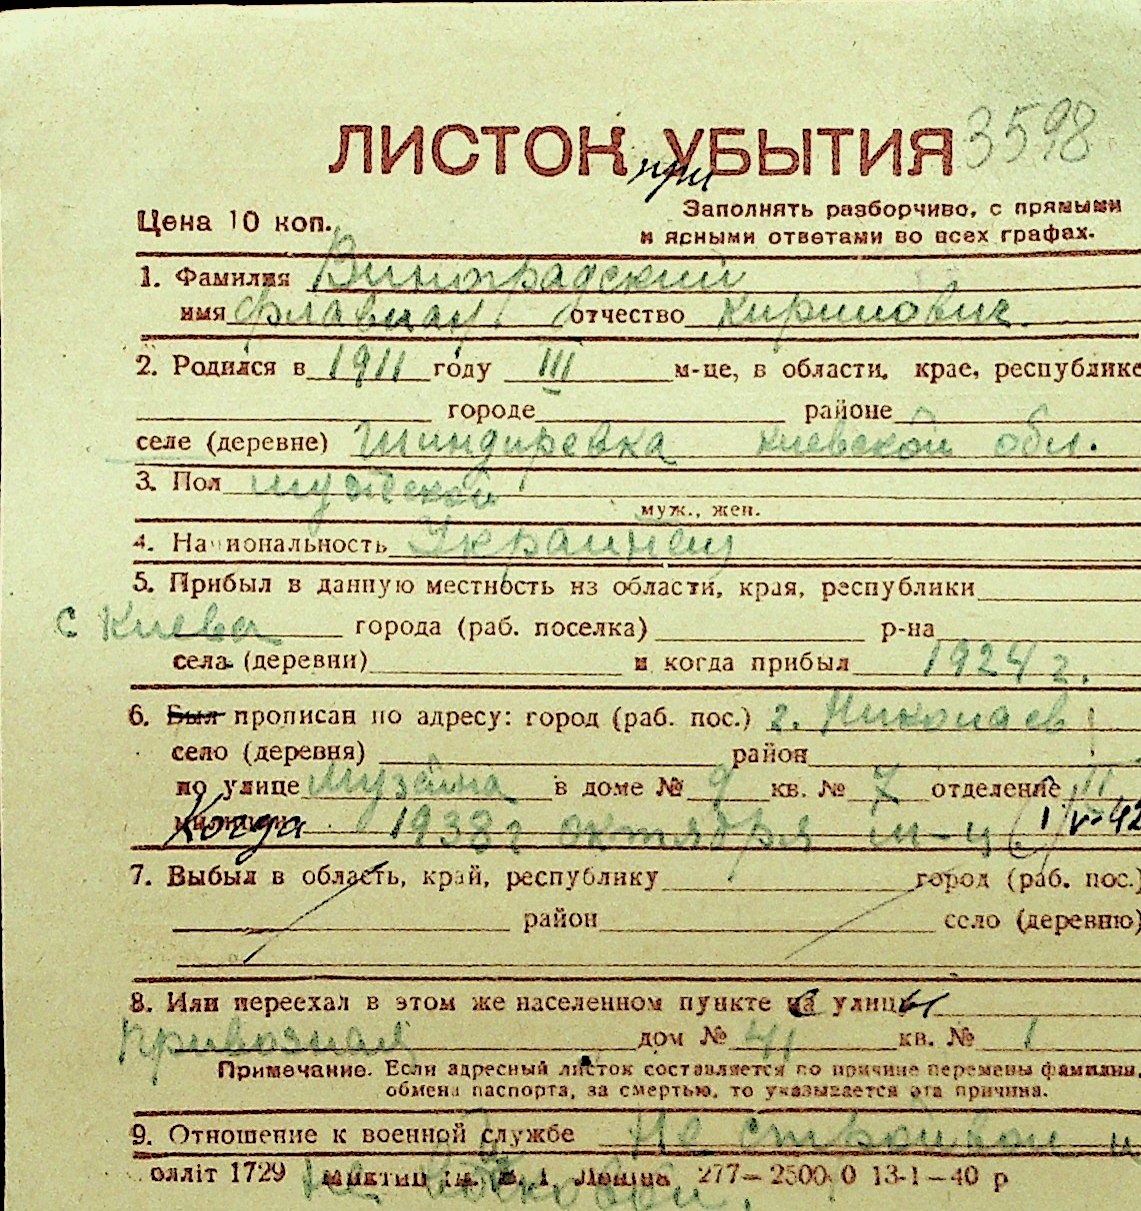 ЛИСТОК УБЫТИЯ 3598
при
Цена 10 коп.
Заполнять разборчиво, с прямыми
и ясными ответами во всех графах.
1. Фамилия Виноградский
имя Флавиан отчество Кирилович.
2. Родился в 1911 году III м-це, в области, крае, республике
городе районе
селе (деревне) Шиндиревка Киевской обл.
3. Пол мужской
муж., жен.
4. Национальность Украинец
5. Прибыл в данную местность из области, края, республики
с Киева города (раб. поселка) р-на
села (деревни) и когда прибыл 1924 г.
6. Был прописан по адресу: город (раб. пос.) г. Николаев
село (деревня) район
по улице Музейна в доме № 9 кв. № 7 отделение II
милиции Когда 1938 г октября м-ц
7. Выбыл в область, край, республику город (раб. пос.)
район село (деревню)
8. Или переехал в этом же населенном пункте с улицы
Привозная дом № 41 кв. № 1
Примечание. Если адресный листок составляется по причине перемены фамилии,
обмена паспорта, за смертью, то указывается эта причина.
9. Отношение к военной службе Не строивой и
олліт 1729 277—2500 0 13-1—40 р
не